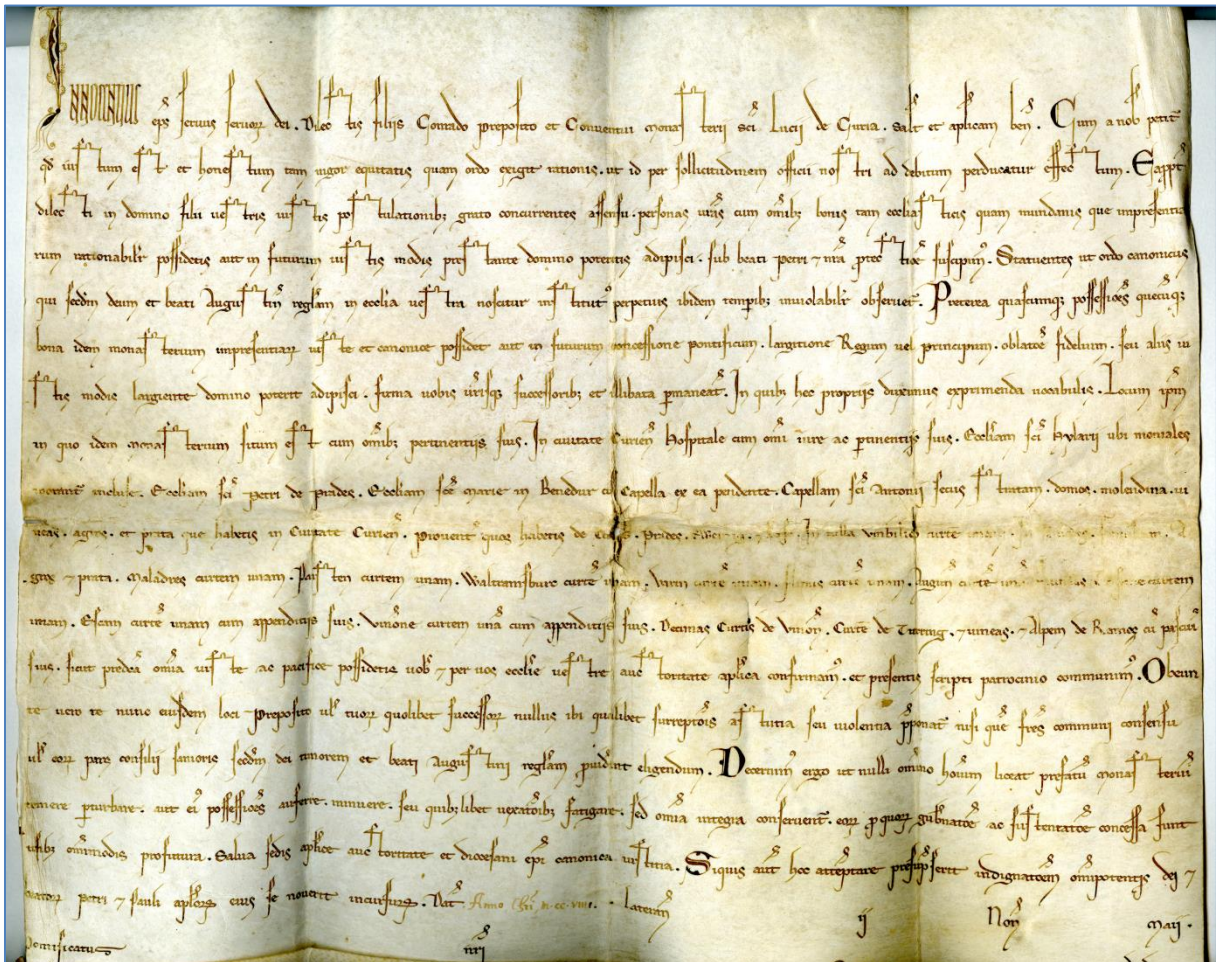 INNOCENTIUS ep̄s servus servoꝝ dei. Dilectis filiis Conrado preposito et Conventui monasterii sc̄i Lucii de Curia. salt̄ et aplicam ben̄. Cum a nob̄ petit̄
qd̄ iustum est et honestum tam vigor equitatis quam ordo exigit rationis. ut id per sollicitudinem officii nostri ad debitum perducatur effectum. Eapp̄t̄
dilecti in domino filii vestris iustis postulationibꝫ grato concurrentes assensu. personas vr̄as cum om̄ibꝫ bonis tam ecclīasticis quam mundanis que inpresentia
rum rationabilr̄ possidetis aut in futurum iustis modis prestante domino poteritis adipisci. sub beati Petri ⁊ nr̄a protectiōe suscipim̄. Statuentes ut ordo canonicus
qui secdm̄ deum et beati Augustin̄ reglam̄ in ecclīa vestra noscitur institut̄ perpetuis ibidem temporibꝫ inviolabilr̄ observet̄. Preterea quascumqꝫ possessiōes quecūqꝫ
bona idem monasterium inpresentiaꝝ iuste et canonice possidet aut in futurum concessione pontificum. largitione Regum vel principum. oblatōe fidelium. seu aliis iu
stis modis largiente domino poterit adipisci. firma vobis vr̄isqꝫ successoribꝫ et illibata ꝑmaneāt. In quibꝫ hec propriis duximus exprimenda vocabulis. Locum ipm̄
in quo idem monasterium situm est cum om̄ibꝫ pertinentiis suis. In civitate Curien̄ Hospitale cum om̄i iure ac ꝑtinentiis suis. Ecclīam sc̄i Hylarii ubi moniales
incluse. Ecclīam sc̄i Petri de Prades. Ecclīam sc̄e Marie in Benedur cū Capella ex ea pendente. Capellam sc̄i Antonii secus stratam. domos. molendina. vi
neas. agros. et prata que habetis in Civitate Curien̄. provent̄ quos habetis de Prades. In villa curtē unam.
gros ⁊ prata. Maladres curtem unam. Pasten curtem unam. Waltramsburc curtē unam. curtē unam. curtē unam. curtē curtem
unam. Escam curtē unam cum appenditiis suis. Vinōne curtem unā cum appenditiis suis. Decimas Curtis de Vinōn. Curtē de ⁊ vineas. ⁊ Alpem de Ramos cū pascuis
suis. sicut predc̄a om̄ia iuste ac pacifice possidetis vob̄ ⁊ per vos ecclīe vestre auctoritate aplīca confirmam̄. et presentis scripti patrocinio communim̄. Obeun
te vero te nunc eiusdem loci Preposito vl̄ tuoꝝ quolibet successoꝝ nullus ibi qualibet surreptōis astutia seu violentia p̄ponat̄ nisi quē fr̄es communi consensu
vl̄ eoꝝ pars consilii sanioris secdm̄ dei timorem et beati Augustini reglam̄ ꝓvidērint eligendum. Decernim̄ ergo ut nulli om̄ino hoīum liceat prefatū monasteriū
temere ꝑturbare. aut ei̅ possessiōes auferre. minuere. seu quibꝫlibet vexatōibꝫ fatigare. sed om̄ia integra conservent̄. eoꝝ ꝓ quoꝝ gub̄natōe ac sustentatōe concessa sunt
usibꝫ om̄imodis profutura. Salva sedis aplīce auctoritate et diocesani ep̄i canonica iustitia. Siquis aut̄ hoc attēptare presūpserit indignatōem om̄ipotentis dei ⁊
beatoꝝ Petri ⁊ Pauli aplōꝝ eius se noverit incursuꝝ. Dat̄ Lateran̄ ii Non̄ Maij.
Pontificatus nr̄i